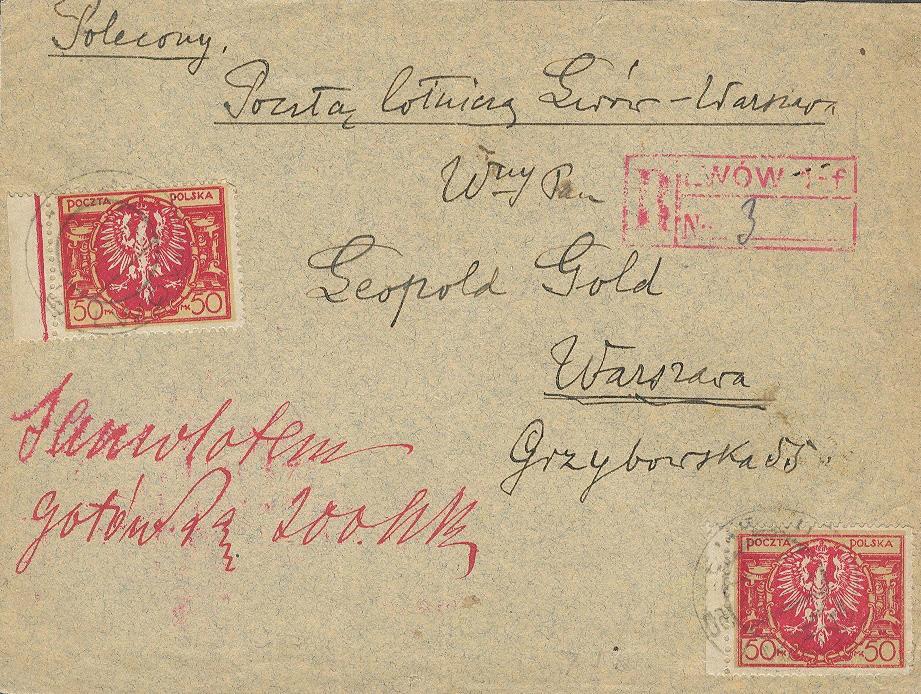 Polecony.
Pocztą lotniczą Lwów-Warszawa
Wny Pan
R LWÓW 1-f
N. 3
POCZTA POLSKA
50 MK 50
Leopold Gold
Warszawa
Grzybowska 55.
Samolotem
gotówką 200. Mk
POCZTA POLSKA
50 MK 50